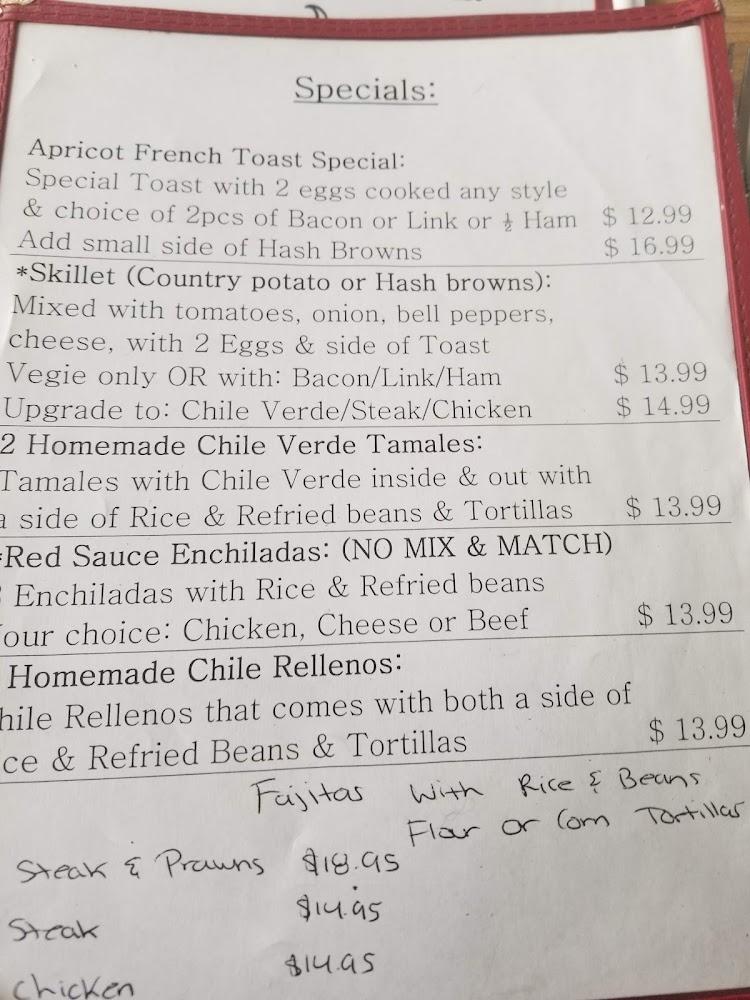 Specials:
Apricot French Toast Special:
Special Toast with 2 eggs cooked any style
& choice of 2pcs of Bacon or Link or ½ Ham $ 12.99
Add small side of Hash Browns $ 16.99
*Skillet (Country potato or Hash browns):
Mixed with tomatoes, onion, bell peppers,
cheese, with 2 Eggs & side of Toast
Vegie only OR with: Bacon/Link/Ham $ 13.99
Upgrade to: Chile Verde/Steak/Chicken $ 14.99
2 Homemade Chile Verde Tamales:
Tamales with Chile Verde inside & out with
a side of Rice & Refried beans & Tortillas $ 13.99
*Red Sauce Enchiladas: (NO MIX & MATCH)
Enchiladas with Rice & Refried beans
our choice: Chicken, Cheese or Beef $ 13.99
Homemade Chile Rellenos:
hile Rellenos that comes with both a side of
ce & Refried Beans & Tortillas $ 13.99
Fajitas with Rice & Beans
Flour or Corn Tortillas
Steak & Prawns $18.95
Steak $14.95
Chicken $14.95